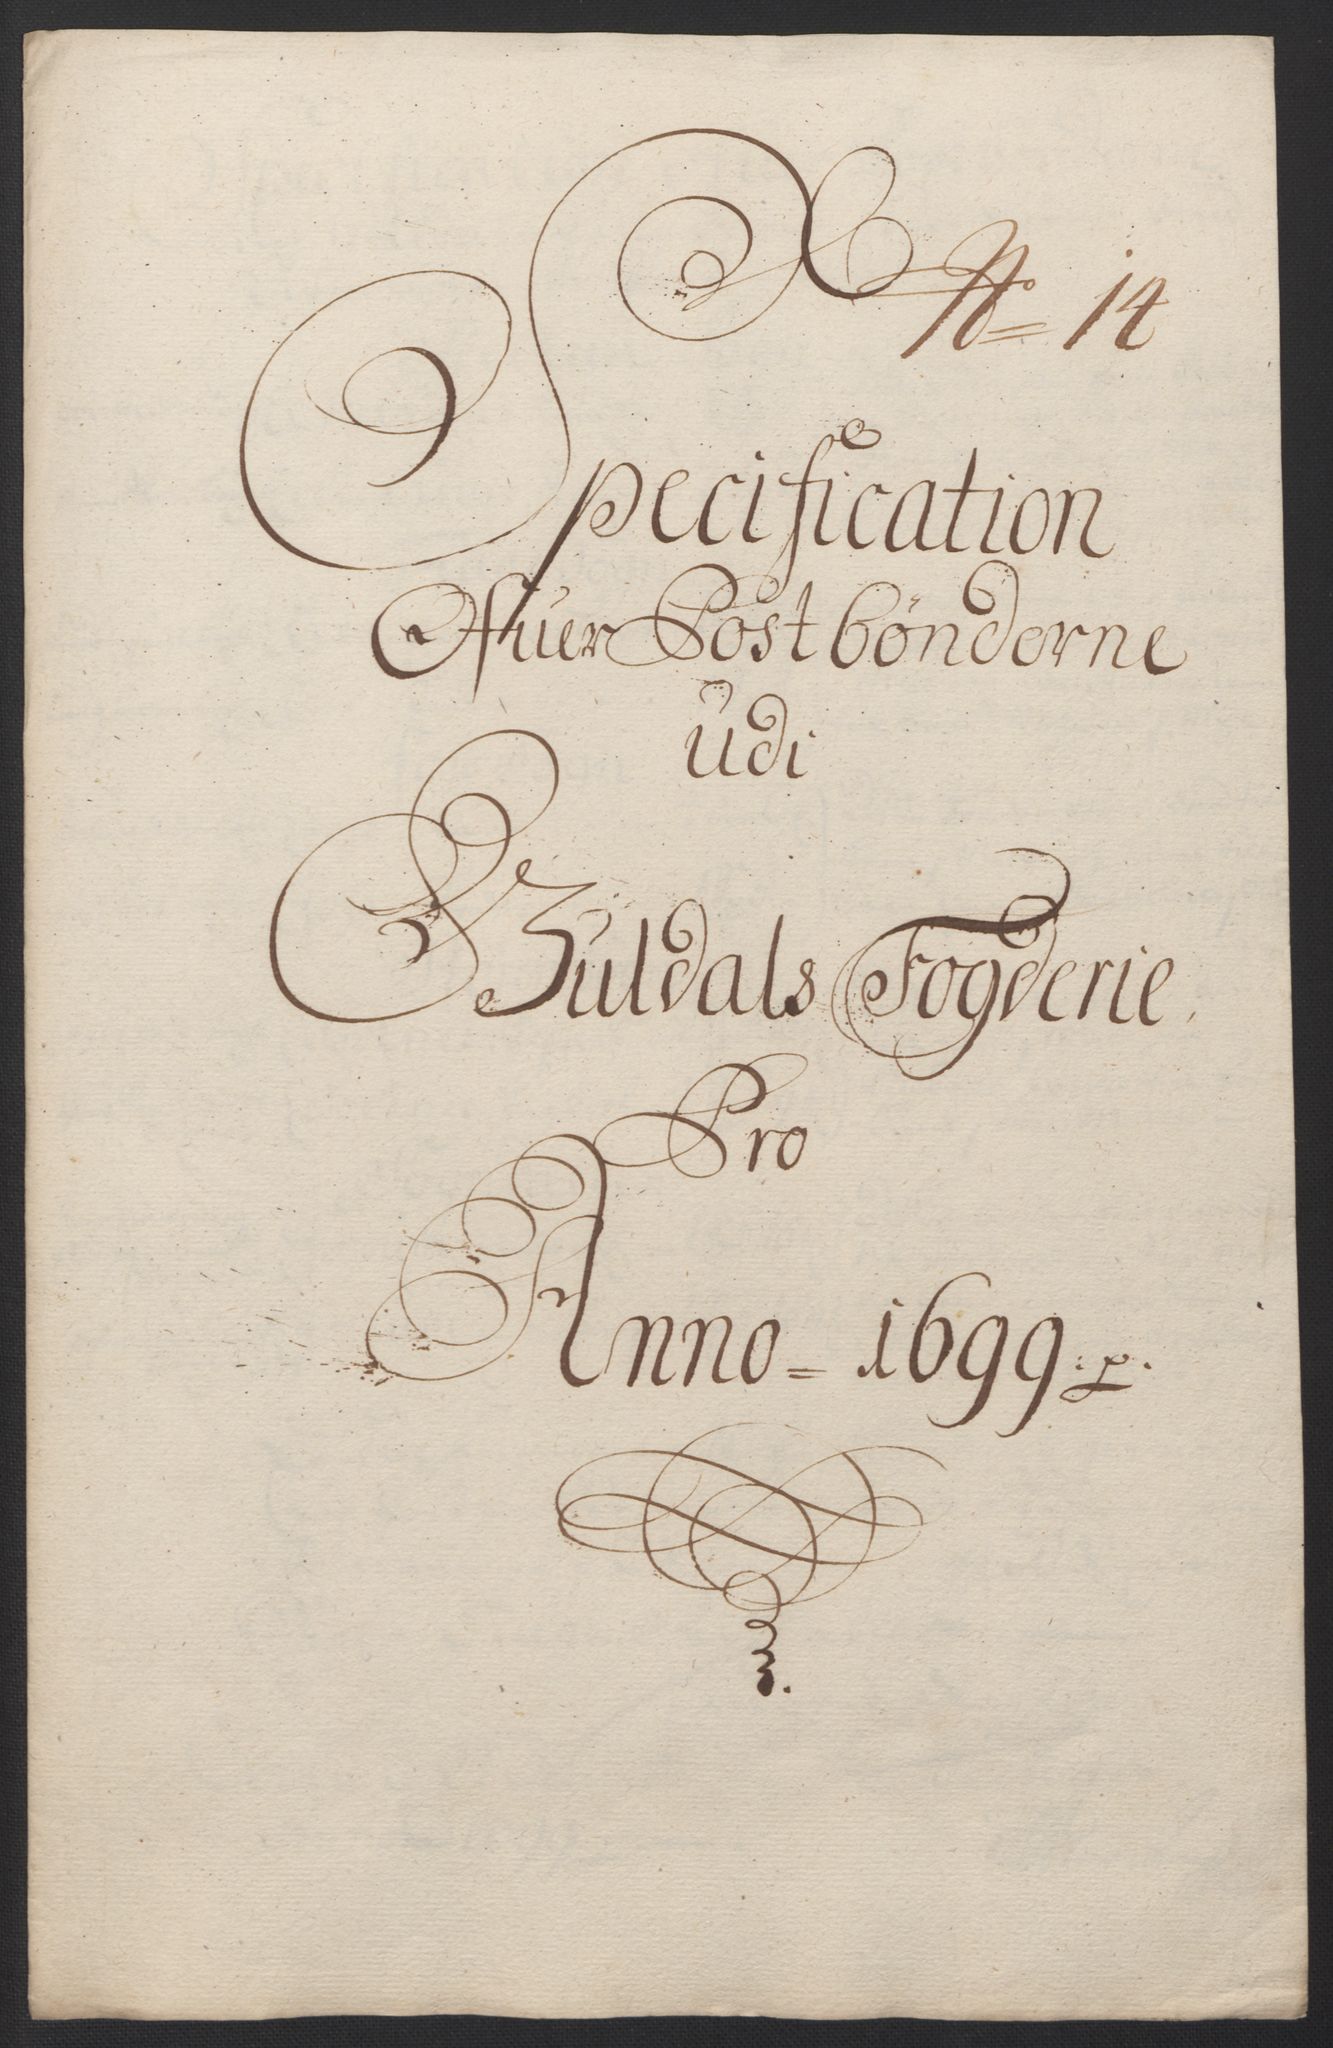 N= 14
Specification
Ofuer Postbønderne
udi
Guldals Fogderie
Pro
Anno = 1699